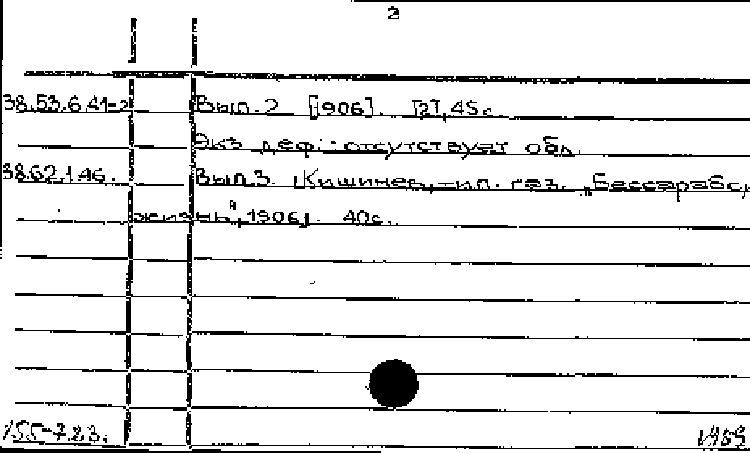 2
38.53.6.41-2 Вып. 2 [1906]. [2], 45 с.
Экз. деф.: отсутствует обл.
38.62.1.46. Вып. 3. [Кишинев, тип. газ. „Бессарабс.
жизнь", 1906]. 40 с.
155-723. 1959